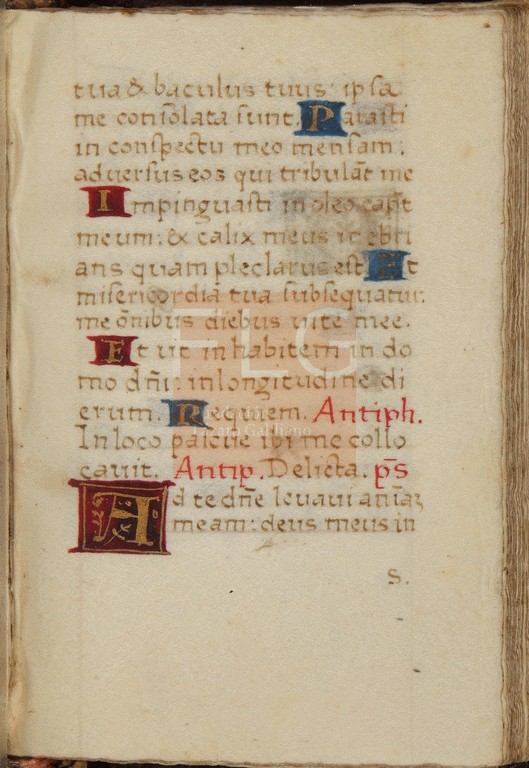 tua & baculus tuus ipsa
me consolata sunt. Parasti
in conspectu meo mensam:
adversus eos qui tribulāt me
Impinguasti in oleo cap̄t
meum: & calix meus inebri
ans quam pleclarus est Et
misericordia tua subsequatur
me ōnibus diebus vite mee.
Et ut inhabitem in do
mo dn̄i: in longitudine di
erum. Requiem. Antiph.
In loco pascue ibi me collo
cavit. Antip. Delicta. p̄s
Ad te dn̄e levavi aniaʒ
meam: deus meus in
S.
FLG
Lázaro Galdiano